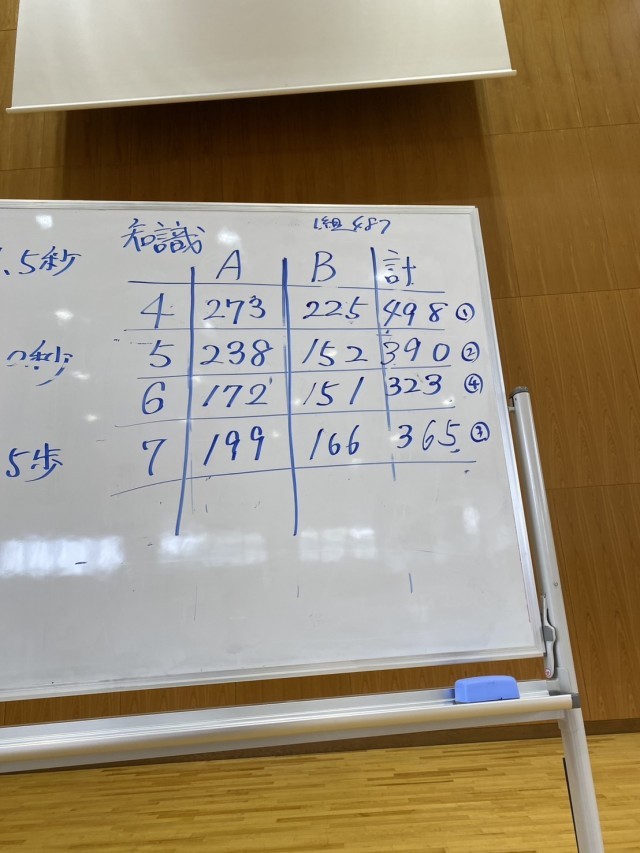 1組 487
知識
A B 計
4 273 225 498 ①
5 238 152 390 ②
6 172 151 323 ④
7 199 166 365 ③
.5秒
秒
5歩